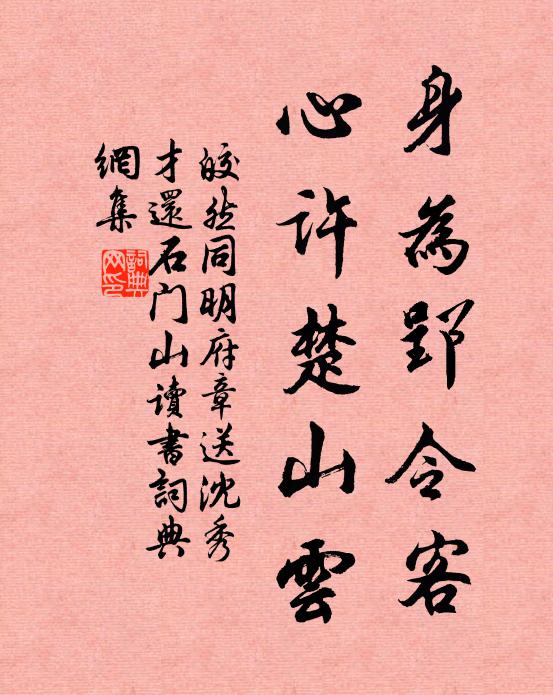 身為郢令客
心許楚山雲
皎然同明府章送沈秀
才還石门山讀書詞典
網集
詞典網印